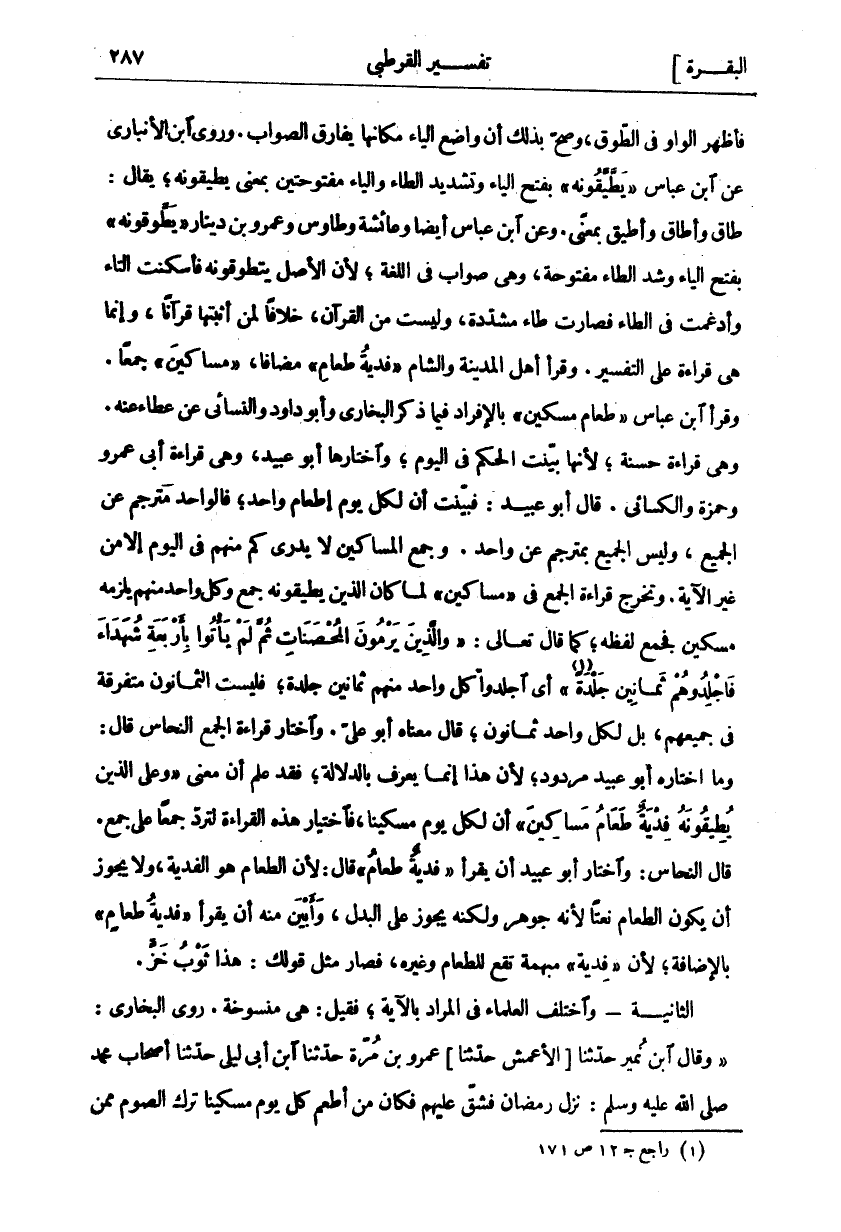 البقـــرة ] تفســـير القرطبي ٢٨٧
فأظهر الواو فى الطّوق، وصحّ بذلك أن واضع الياء مكانها يفارق الصواب. وروى آبن الأنبارى
عن آبن عباس «يَطَّيَّقُونه» بفتح الياء وتشديد الطاء والياء مفتوحتين بمعنى يطيقونه؛ يقال :
طاق وأطاق وأطيق بمعنًى. وعن آبن عباس أيضا وعائشة وطاوس وعمرو بن دينار «يَطَّوقونه»
بفتح الياء وشد الطاء مفتوحة، وهى صواب فى اللغة ؛ لأن الأصل يتطوقونه فأسكنت التاء
وأدغمت فى الطاء فصارت طاء مشدّدة، وليست من القرآن، خلافًا لمن أثبتها قرآنًا ، وإنما
هى قراءة على التفسير . وقرأ أهل المدينة والشام «فديةُ طعامِ» مضافا، «مساكينَ» جمعًا .
وقرأ آبن عباس «طعام مسكين» بالإفراد فيما ذكر البخارى وأبو داود والنسائى عن عطاء عنه.
وهى قراءة حسنة ؛ لأنها بيّنت الحكم فى اليوم ؛ وآختارها أبو عبيد، وهى قراءة أبى عمرو
وحمزة والكسائى . قال أبو عبيــد : فبيّنت أن لكل يوم إطعام واحد؛ فالواحد مُترجم عن
الجميع ، وليس الجميع بمترجم عن واحد . وجمع المساكين لا يدرى كم منهم فى اليوم إلا من
غير الآية. وتخرج قراءة الجمع فى «مساكين» لما كان الذين يطيقونه جمع وكل واحد منهم يلزمه
مسكين فجمع لفظه؛ كما قال تعــالى : « وَالَّذِينَ يَرْمُونَ الْمُحْصَنَاتِ ثُمَّ لَمْ يَأْتُوا بِأَرْبَعَةِ شُهَدَاءَ
فَاجْلِدُوهُمْ ثَمَــانِين جَلْدَةً (١) » أى آجلدوا كل واحد منهم ثمانين جلدة؛ فليست الثمــانون متفرقة
فى جميعهم، بل لكل واحد ثمــانون ؛ قال معناه أبو علىّ . وآختار قراءة الجمع النحاس قال:
وما اختاره أبو عبيد مردود؛ لأن هذا إنمــا يعرف بالدلالة؛ فقد علم أن معنى «وعلى الذين
يُطِيقُونَهُ فِدْيَةٌ طَعَامُ مَسَاكِينَ» أن لكل يوم مسكينا، فآختيار هذه القراءة لتردّ جمعًا على جمع.
قال النحاس: وآختار أبو عبيد أن يقرأ « فديةٌ طعامُ» قال: لأن الطعام هو الفدية، ولا يجوز
أن يكون الطعام نعتًا لأنه جوهر ولكنه يجوز على البدل ، وَأَبْيَن منه أن يقرأ «فديةُ طعامٍ»
بالإضافة؛ لأن «فِدية» مبهمة تقع للطعام وغيره، فصار مثل قولك : هذا ثَوْبُ خَزٍّ.
الثانيــــة — وآختلف العلماء فى المراد بالآية ؛ فقيل: هى منسوخة . روى البخارى :
« وقال آبن نُمير حدّثنا [ الأعمش حدّثنا ] عمرو بن مُرّة حدّثنا آبن أبى ليلى حدّثنا أصحاب محمد
صلى الله عليه وسلم : نزل رمضان فشقّ عليهم فكان من أطعم كل يوم مسكينا ترك الصوم ممن
(١) راجع جـ ١٢ ص ١٧١